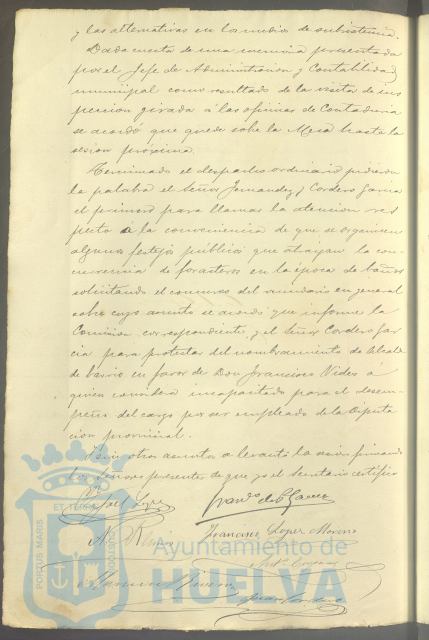 y las alternativas en los medios de subsistencia.
Dada cuenta de una memoria presentada
por el Jefe de Administracion y Contabilidad
municipal como resultado de la visita de ins
peccion girada á las oficinas de Contaduria
se acordó que quede sobre la Mesa hasta la
sesion próxima.
Terminado el despacho ordinario pidieron
la palabra el Señor Fernandez y Cordero Garcia
el primero para llamar la atencion res
pecto á la conveniencia de que se organicen
algunos festejos públicos que atraigan la con
currencia de forasteros en la época de baños
solicitando el concurso del vecindario en general
sobre cuyo asunto se acordó que informe la
Comision correspondiente, y el Señor Cordero Gar
cia para protestar del nombramiento de Alcalde
de barrio en favor de Don Francisco Vides á
quien considera incapacitado para el desem-
peño del cargo por ser empleado de la Diputa
cion provincial.
Y sin otros asuntos se levantó la sesion firmando
los Señores presentes de que yo el Secretario certifico
Lopez
Francisco Lopez Moreno
PORTUS MARIS
ET TERRÆ
CUSTODIA
Ayuntamiento de
HUELVA